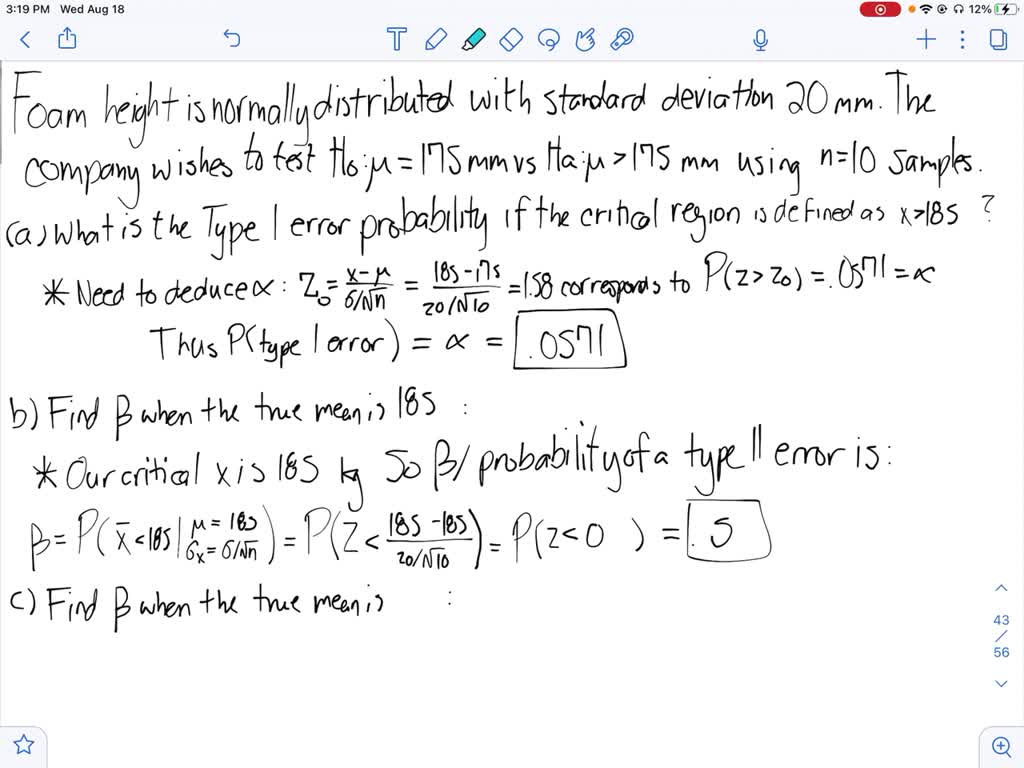 3:19 PM Wed Aug 18
12%
Foam height is normally distributed with standard deviation 20 mm. The
company wishes to test H₀: μ = 175 mm vs Ha: μ > 175 mm using n=10 samples.
(a) What is the Type 1 error probability if the critical region is defined as x>185 ?
* Need to deduce α: Z₀ = (x-μ)/(σ/√n) = (185-175)/(20/√10) = 1.58 corresponds to P(z > z₀) = .0571 = α
Thus P(type 1 error) = α = .0571
b) Find β when the true mean is 185 :
* Our critical x is 185 kg So β/probability of a type II error is:
β = P(x̄ < 185 | μ = 185 σₓ = σ/√n) = P(Z < (185-185)/(20/√10)) = P(z < 0 ) = .5
c) Find β when the true mean is :
43
/
56